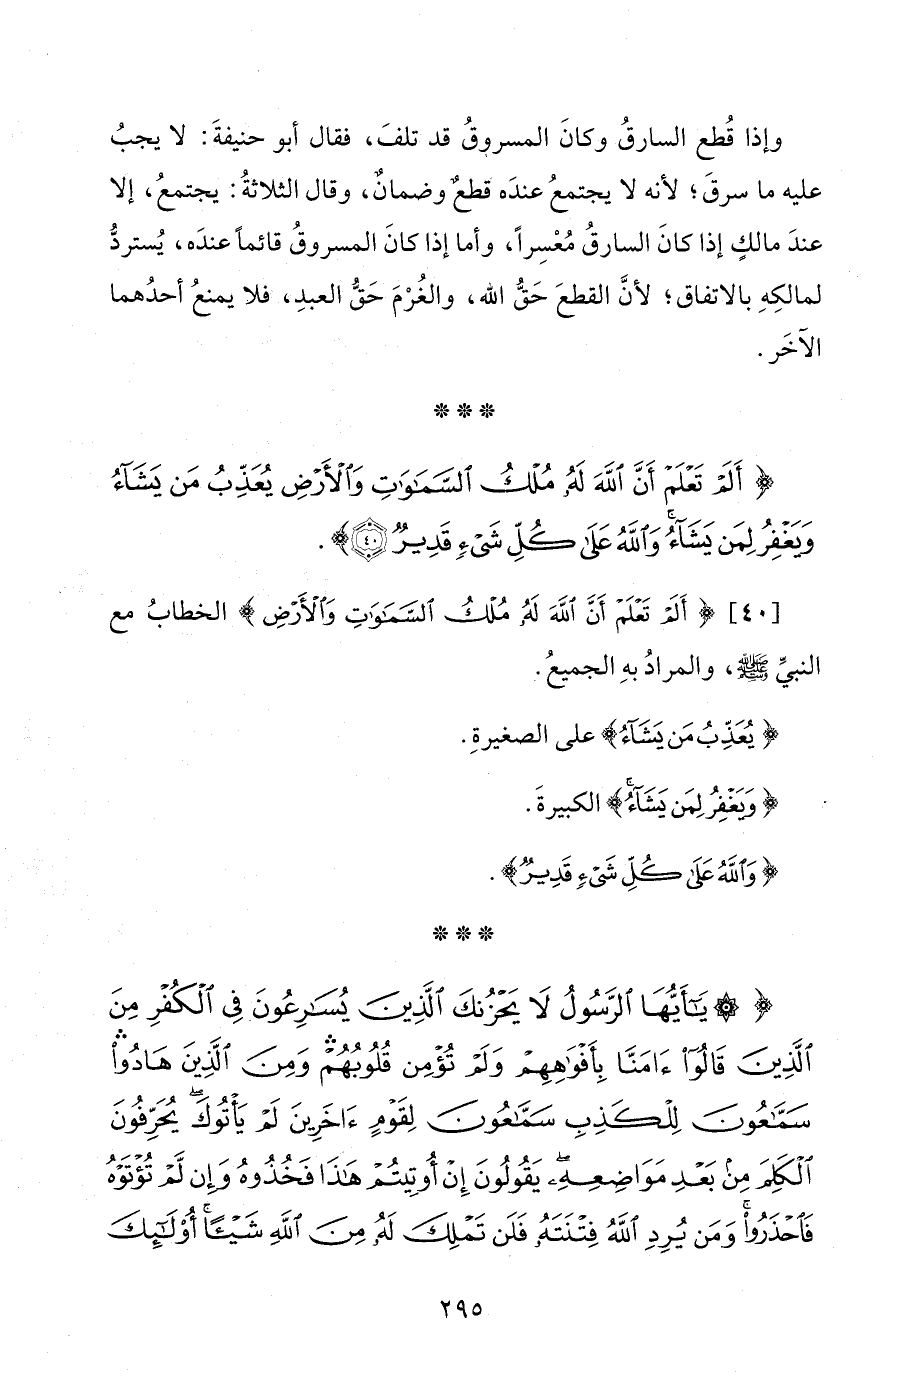 وإذا قُطع السارقُ وكانَ المسروقُ قد تلفَ، فقال أبو حنيفةَ: لا يجبُ
عليه ما سرقَ؛ لأنه لا يجتمعُ عندَه قطعٌ وضمانٌ، وقال الثلاثةُ: يجتمعُ، إلا
عندَ مالكٍ إذا كانَ السارقُ مُعْسِراً، وأما إذا كانَ المسروقُ قائماً عندَه، يُستردُّ
لمالكِهِ بالاتفاق؛ لأنَّ القطعَ حَقُّ الله، والغُرْمَ حَقُّ العبدِ، فلا يمنعُ أحدُهما
الآخَر.
***
﴿ أَلَمْ تَعْلَمْ أَنَّ ٱللَّهَ لَهُۥ مُلْكُ ٱلسَّمَٰوَٰتِ وَٱلْأَرْضِ يُعَذِّبُ مَن يَشَآءُ
وَيَغْفِرُ لِمَن يَشَآءُ ۗ وَٱللَّهُ عَلَىٰ كُلِّ شَىْءٍ قَدِيرٌ ٤٠﴾.
[٤٠] ﴿ أَلَمْ تَعْلَمْ أَنَّ ٱللَّهَ لَهُۥ مُلْكُ ٱلسَّمَٰوَٰتِ وَٱلْأَرْضِ ﴾ الخطابُ مع
النبيِّ ﷺ، والمرادُ بهِ الجميعُ.
﴿ يُعَذِّبُ مَن يَشَآءُ﴾ على الصغيرةِ.
﴿ وَيَغْفِرُ لِمَن يَشَآءُ ۗ﴾ الكبيرةَ.
﴿ وَٱللَّهُ عَلَىٰ كُلِّ شَىْءٍ قَدِيرٌ﴾.
***
﴿ ۞ يَٰٓأَيُّهَا ٱلرَّسُولُ لَا يَحْزُنكَ ٱلَّذِينَ يُسَٰرِعُونَ فِى ٱلْكُفْرِ مِنَ
ٱلَّذِينَ قَالُوٓا۟ ءَامَنَّا بِأَفْوَٰهِهِمْ وَلَمْ تُؤْمِن قُلُوبُهُمْ ۛ وَمِنَ ٱلَّذِينَ هَادُوا۟ ۛ
سَمَّٰعُونَ لِلْكَذِبِ سَمَّٰعُونَ لِقَوْمٍ ءَاخَرِينَ لَمْ يَأْتُوكَ ۖ يُحَرِّفُونَ
ٱلْكَلِمَ مِنۢ بَعْدِ مَوَاضِعِهِۦ ۖ يَقُولُونَ إِنْ أُوتِيتُمْ هَٰذَا فَخُذُوهُ وَإِن لَّمْ تُؤْتَوْهُ
فَٱحْذَرُوا۟ ۚ وَمَن يُرِدِ ٱللَّهُ فِتْنَتَهُۥ فَلَن تَمْلِكَ لَهُۥ مِنَ ٱللَّهِ شَيْـًٔا ۚ أُو۟لَٰٓئِكَ
٢٩٥